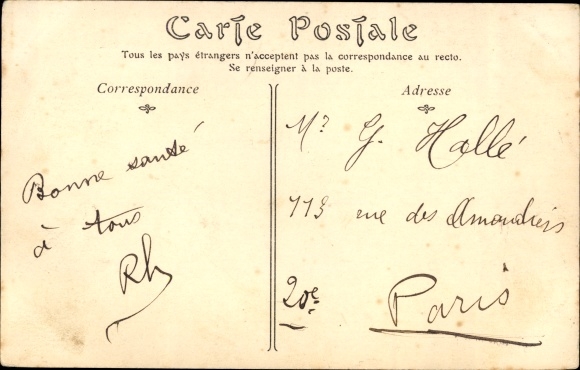 Carte Postale
Tous les pays étrangers n'acceptent pas la correspondance au recto.
Se renseigner à la poste.
Correspondance
Bonne santé
à tous
Rh
Adresse
Mr G. Hallé
113 rue des Amandiers
20e Paris